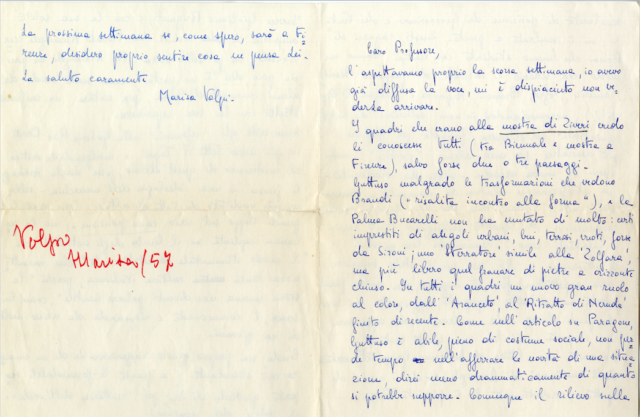 La prossima settimana se, come spero, sarò a Fi-
renze, desidero proprio sentire cosa ne pensa Lei.
La saluto caramente
Marisa Volpi.
Volpi
Marisa/57
Caro Professore,
l'aspettavamo proprio la scorsa settimana, io avevo
già diffusa la voce, mi è dispiaciuto non ve-
derla arrivare.
I quadri che erano alla mostra di Ziveri credo
li conoscesse tutti (tra Biennale e mostra a
Firenze), salvo forse due o tre paesaggi.
Guttuso malgrado le trasformazioni che vedono
Brandi ("risalita incontro alla forma"), e la
Palma Bucarelli non ha mutato di molto: certi
imprestiti di angoli urbani, bui, terrosi, vuoti, forse
da Sironi; uno 'Sterratore' simile alla 'Zolfara',
ma più libero quel franare di pietre a orizzonte
chiuso. In tutti i quadri un nuovo gran ruolo
al colore, dall' 'Aranceto', al 'Ritratto di Neruda'
finito di recente. Come nell'articolo su Paragone
Guttuso è abile, pieno di costume sociale, non per-
de tempo nell'afferrare le novità di una situa-
zione, direi meno drammaticamente di quanto
si potrebbe supporre. Comunque il rilievo sulla